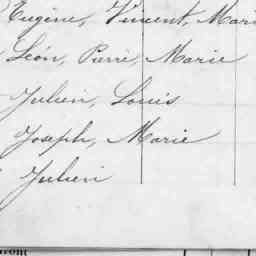 Eugène, Vincent, Mari
Léon, Pierre, Marie
Julien, Louis
Joseph, Marie
Julien